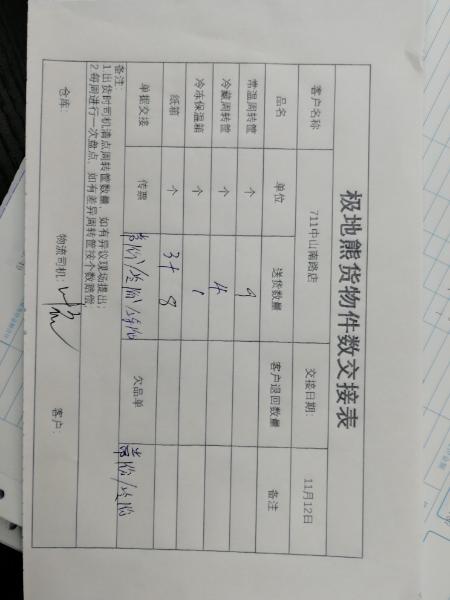 极地熊货物件数交接表
客户名称 711中山南路店 交接日期: 11月12日
品名 单位 送货数量 客户退回数量 备注
常温周转筐 个 9
冷藏周转筐 个 4
冷冻保温箱 个 1
纸箱 个 3+8
单据交接 传票 欠品单
备注:
1.出货时司机清点周转筐数量,如有异议现场提出;
2.每周进行一次盘点,如有差异周转筐按个数赔偿。
仓库: 物流司机: 客户: